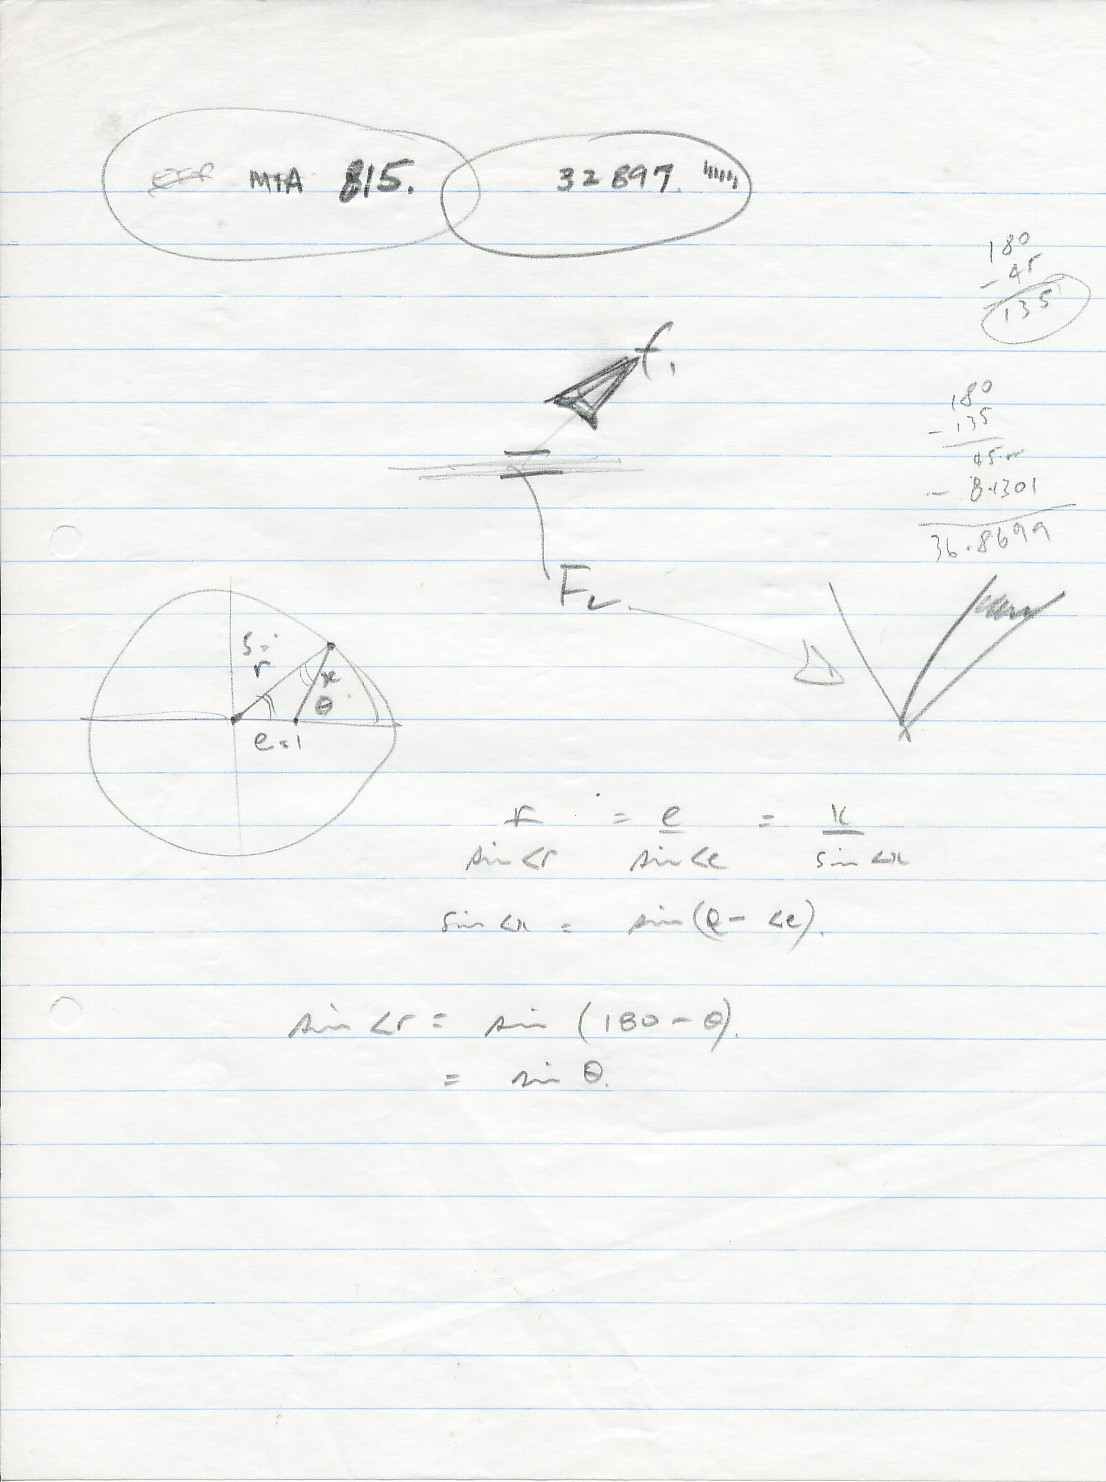 MTA 815.
32897.
180
- 45
135
f1
180
- 135
45
- 8.1301
36.8699
F2
5 =
r
x
θ
e = 1
r = e = x
sin <r sin <e sin <x
sin <x = sin (θ - <e).
sin <r = sin (180 - θ).
= sin θ.